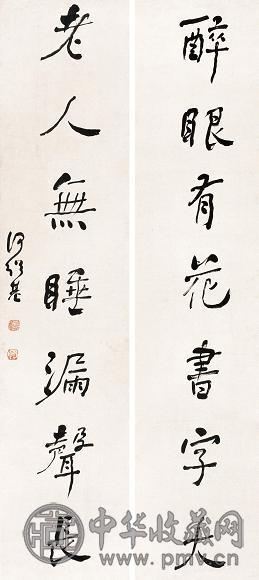 醉眼有花書字大
老人無睡漏聲長
何紹基
中华收藏网
www.pmv.cn